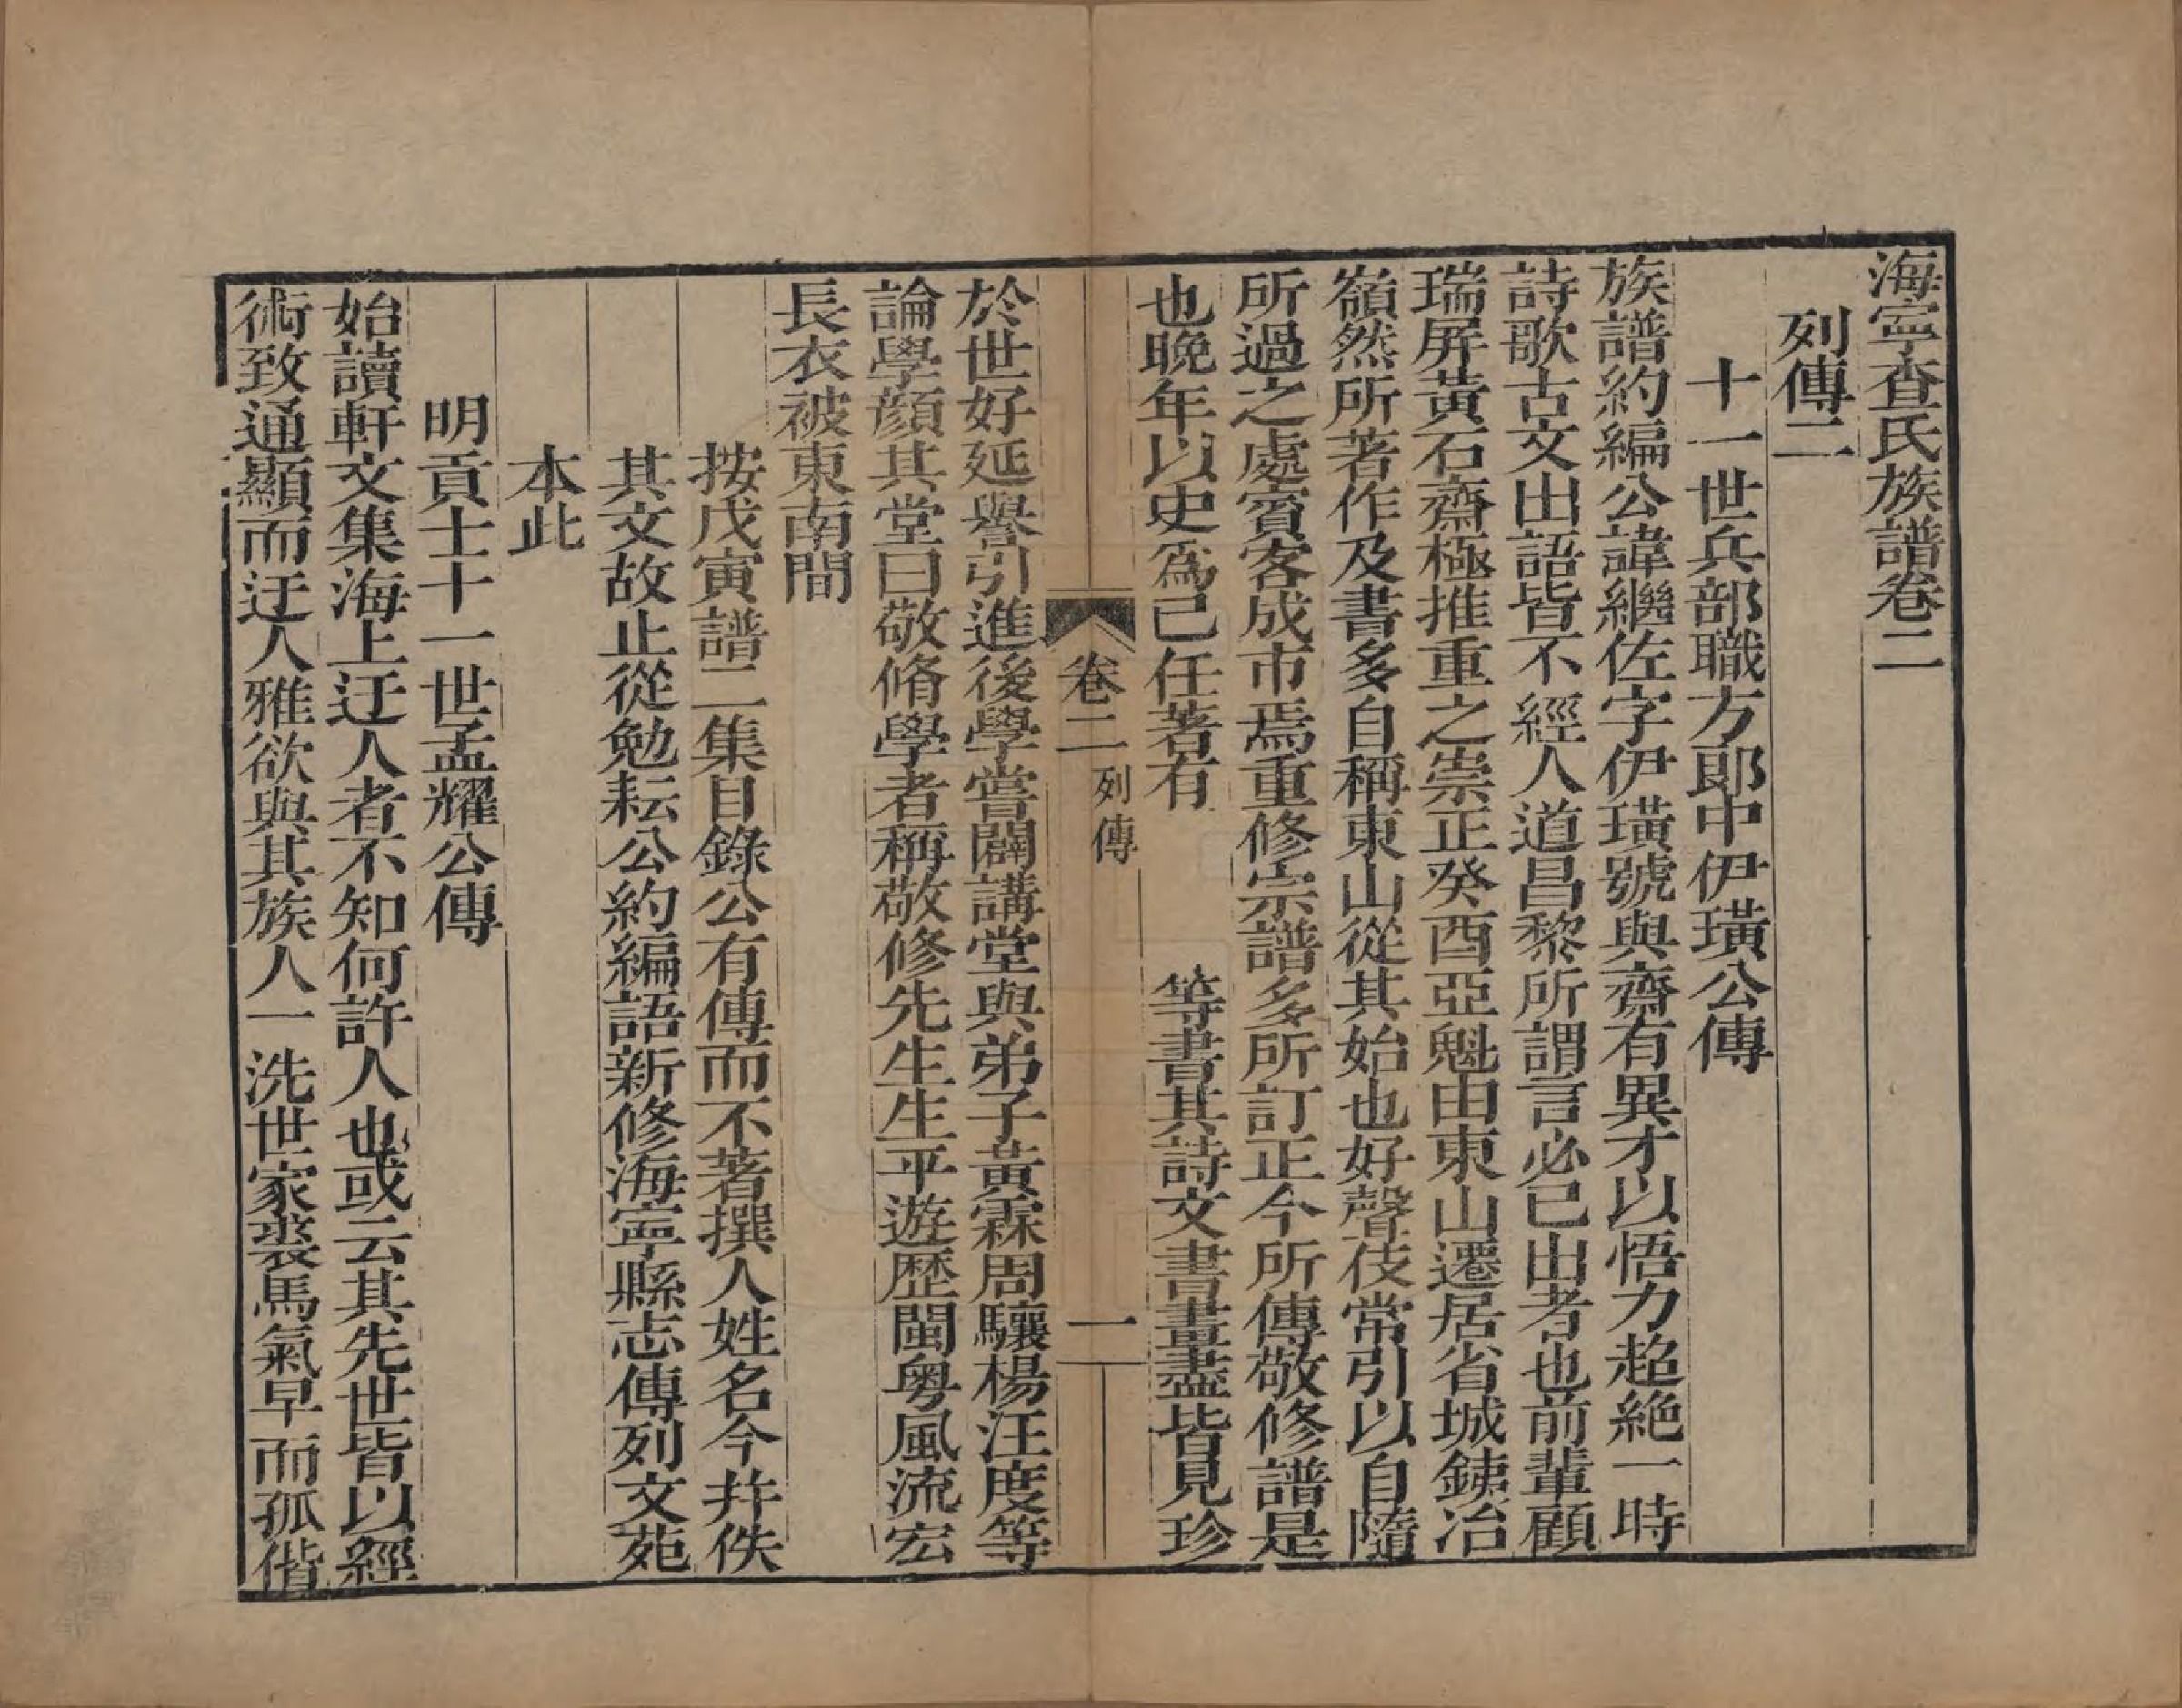 海寧查氏族譜卷二
列傳二
十一世兵部職方郎中伊璜公傳
族譜約編公諱繼佐字伊璜號與齋有異才以悟力超絶一時
詩歌古文出語皆不經人道昌黎所謂言必己出者也前輩顧
瑞屏黃石齋極推重之崇正癸酉亞魁由東山遷居省城銕冶
嶺然所著作及書多自稱東山從其始也好聲伎常引以自隨
所過之處賓客成市焉重修宗譜多所訂正今所傳敬修譜是
也晚年以史爲己任著有　　　等書其詩文書畫盡皆見珍
卷二　列傳　一
於世好延譽引進後學嘗闢講堂與弟子黃霖周驤楊汪度等
論學顔其堂曰敬脩學者稱敬修先生生平遊歴閩粤風流宏
長衣被東南間
按戊寅譜二集目錄公有傳而不著撰人姓名今幷佚
其文故止從勉耘公約編語新修海寧縣志傳列文苑
本此
明貢士十一世孟耀公傳
始讀軒文集海上迂人者不知何許人也或云其先世皆以經
術致通顯而迂人雅欲與其族人一洗世家裘馬氣早而孤偕